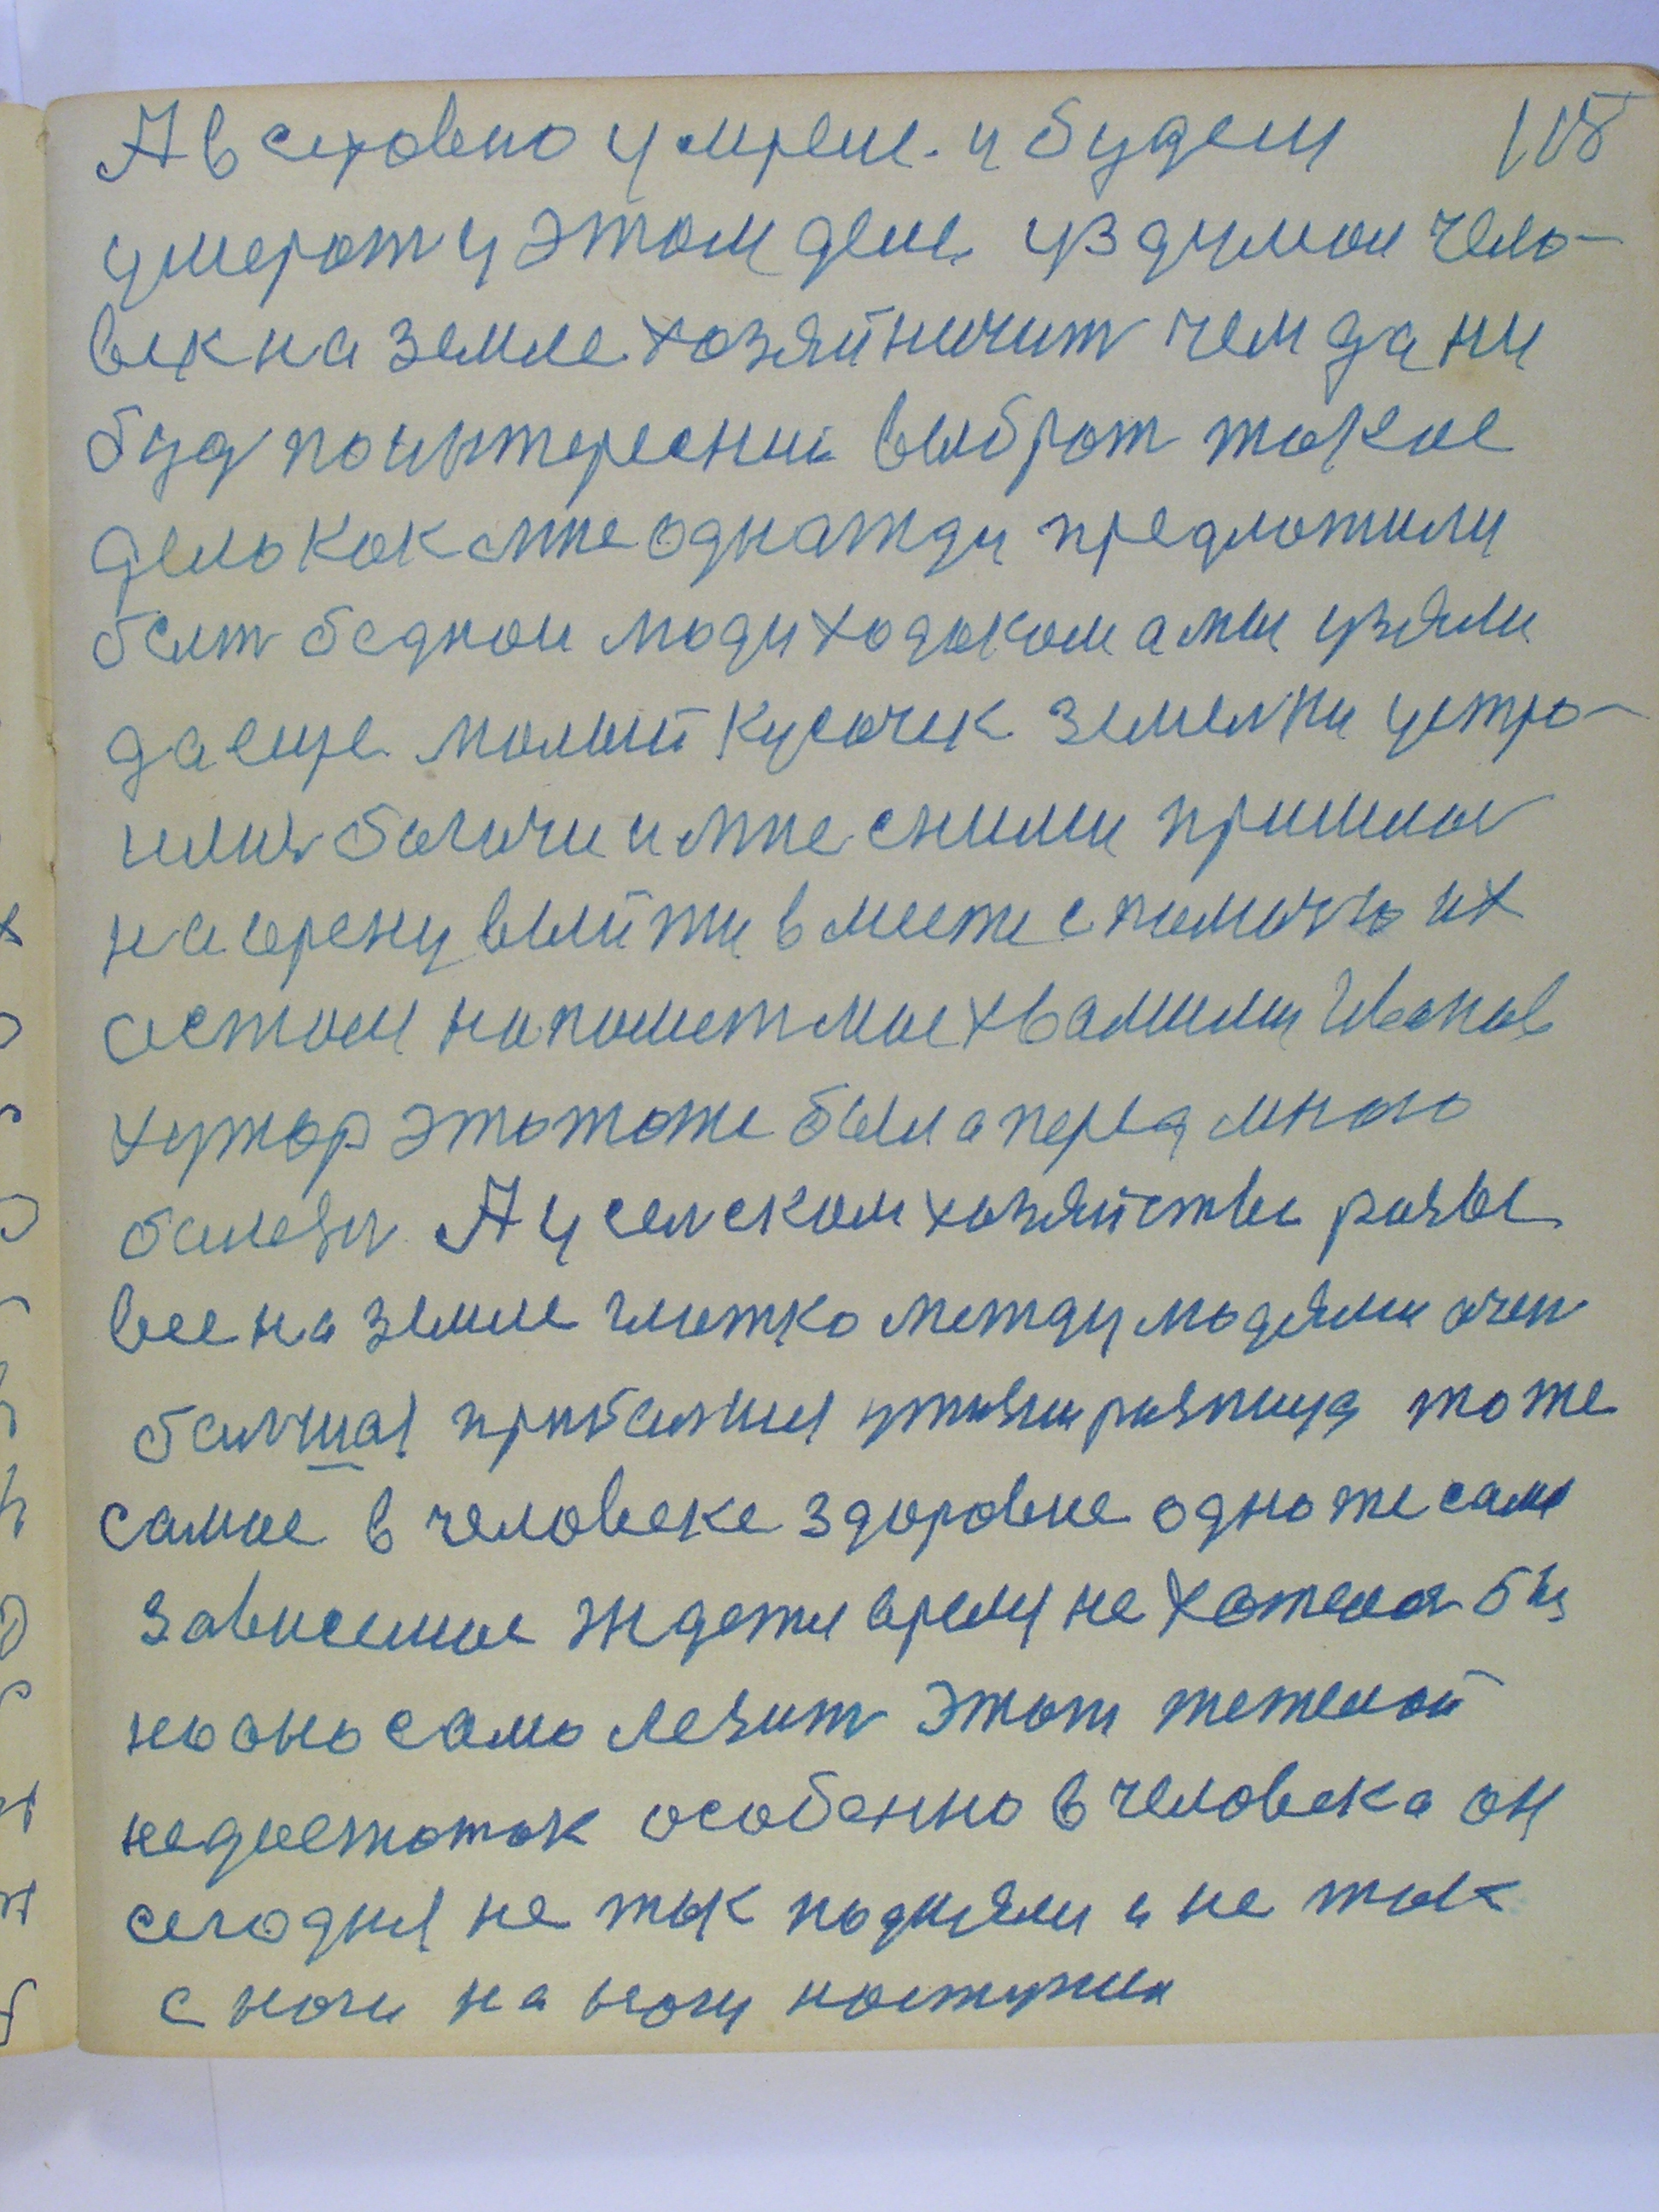 А всеровно умрем. и будем 118
умерат у этом деле. уздумол чело-
век на земле хозяйничит чемда ни
буд поинтересний выброт такое
дело как мне однажди предложили
быт бедной люди ходоком а мы узяли
да еще малый кусочек земелки устро-
илис богачи и мне сними пришлос
на арену выйти вместе спомоч их
астом на помет мое хвамили Иванов
хутор это тоже была перед мною
болезн А у селском хозяйстве
все на земле между людями очен
болшая тоже
самое в человеке здоровие одно же само
зависемое ждати время не хотелос бы
но оно само лезит этот тежелой
недостаток особенно в человека он
сегодня не так подняли и не так
с ноги на ногу наступил